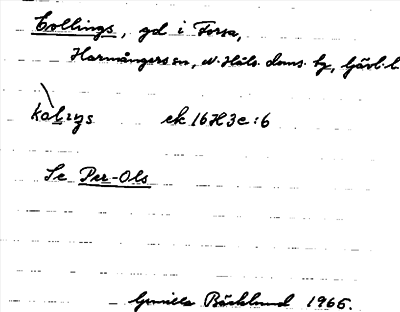 Collings, gd i Forsa,
Harmångers sn, n. Häls. doms. hg, Gävl. l.
kålıŋs ek 16H3e:6
Se Per-Ols
Gunilla Bäcklund 1966.